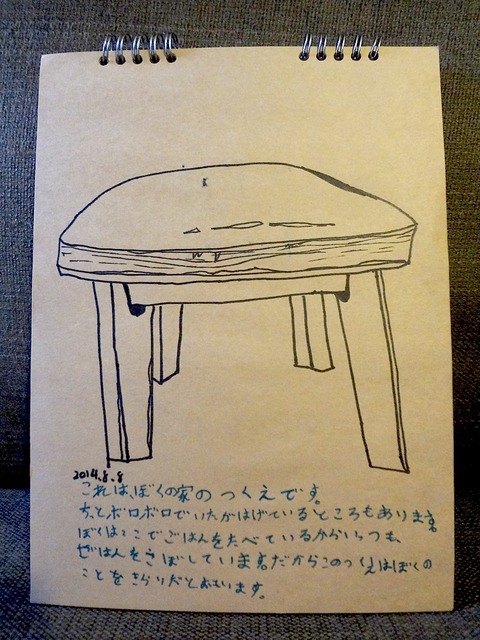 2014.8.8
これは、ぼくの家のつくえです。
ちょとボロボロでいたがはげているところもあります。
ぼくはここでごはんをたべているからいつも、
ごはんをこぼしています。だからこのつくえはぼくの
ことをきらいだとおもいます。